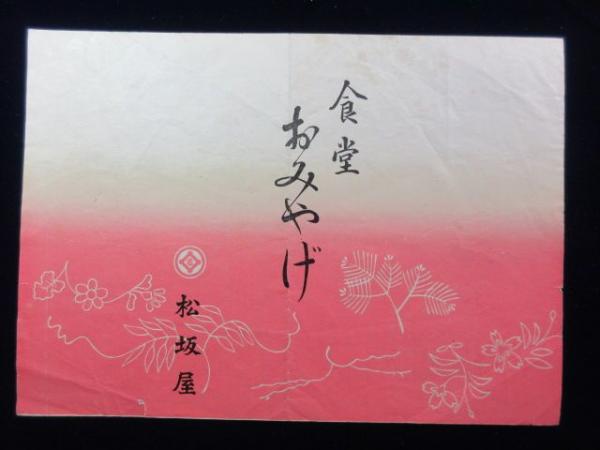 食堂
おみやげ
松坂屋